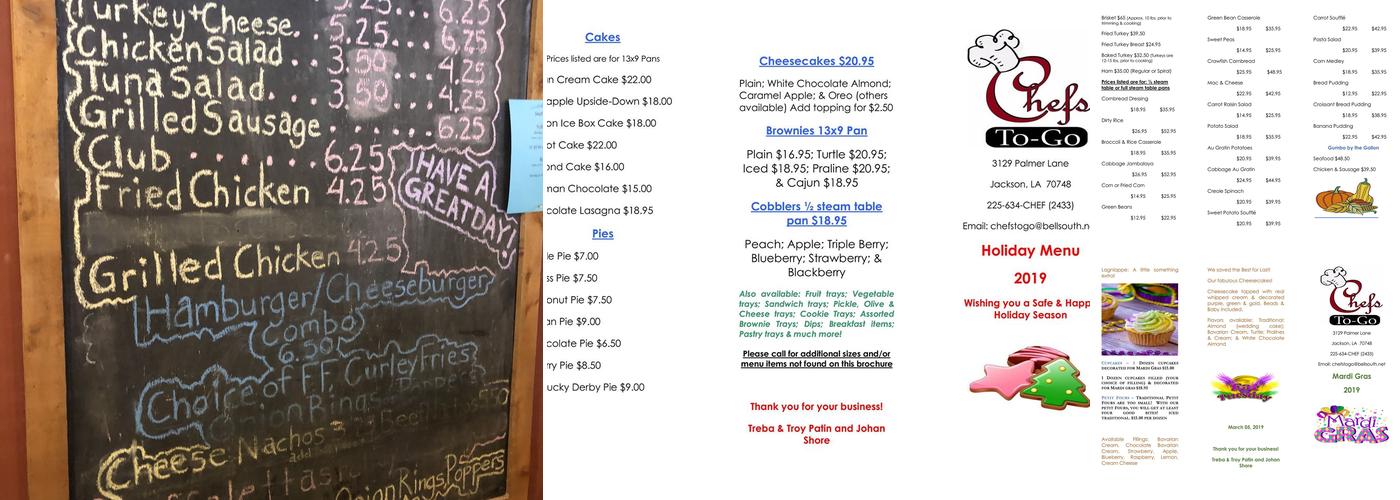 Turkey+Cheese. 5.25... 6.25
Chicken Salad ... 3.50... 4.25
Tuna Salad ... 3.50... 4.25
Grilled Sausage ........ 6.25
Club ...... 6.25
Fried Chicken 4.25
HAVE A
GREAT DAY!
Grilled Chicken 4.25
Hamburger/Cheeseburger
Combos
6.50
Choice of FF Curley Fries
Onion Rings
Cheese Nachos
add
Onion Rings Poppers
Cakes
Prices listed are for 13x9 Pans
n Cream Cake $22.00
apple Upside-Down $18.00
on Ice Box Cake $18.00
ot Cake $22.00
ond Cake $16.00
man Chocolate $15.00
colate Lasagna $18.95
Pies
le Pie $7.00
ss Pie $7.50
onut Pie $7.50
an Pie $9.00
colate Pie $6.50
rry Pie $8.50
ucky Derby Pie $9.00
Cheesecakes $20.95
Plain; White Chocolate Almond;
Caramel Apple; & Oreo (others
available) Add topping for $2.50
Brownies 13x9 Pan
Plain $16.95; Turtle $20.95;
Iced $18.95; Praline $20.95;
& Cajun $18.95
Cobblers ½ steam table
pan $18.95
Peach; Apple; Triple Berry;
Blueberry; Strawberry; &
Blackberry
Also available: Fruit trays; Vegetable
trays; Sandwich trays; Pickle, Olive &
Cheese trays; Cookie Trays; Assorted
Brownie Trays; Dips; Breakfast items;
Pastry trays & much more!
Please call for additional sizes and/or
menu items not found on this brochure
Thank you for your business!
Treba & Troy Patin and Johan
Shore
Chefs
To-Go
3129 Palmer Lane
Jackson, LA 70748
225-634-CHEF (2433)
Email: chefstogo@bellsouth.n
Holiday Menu
2019
Wishing you a Safe & Happ
Holiday Season
Brisket $65 (Approx. 10 lbs. prior to
trimming & cooking)
Fried Turkey $39.50
Fried Turkey Breast $24.95
Baked Turkey $32.50 (Turkeys are
12-15 lbs. prior to cooking)
Ham $35.00 (Regular or Spiral)
Prices listed are for: ½ steam
table or full steam table pans
Cornbread Dressing
$18.95 $35.95
Dirty Rice
$26.95 $52.95
Broccoli & Rice Casserole
$18.95 $35.95
Cabbage Jambalaya
$26.95 $52.95
Corn or Fried Corn
$14.95 $25.95
Green Beans
$12.95 $22.95
Green Bean Casserole
$20.95 $39.95
Sweet Peas
$14.95 $25.95
Crawfish Cornbread
$25.95 $48.95
Mac & Cheese
$22.95 $42.95
Carrot Raisin Salad
$20.95 $39.95
Potato Salad
$18.95 $35.95
Au Gratin Potatoes
$20.95 $39.95
Cabbage Au Gratin
$24.95 $44.95
Creole Spinach
$20.95 $39.95
Sweet Potato Soufflé
$20.95 $39.95
Carrot Soufflé
$22.95 $42.95
Pasta Salad
$20.95 $39.95
Corn Medley
$18.95 $35.95
Bread Pudding
$12.95 $22.95
Croissant Bread Pudding
$14.95 $38.95
Banana Pudding
$22.95 $42.95
Gumbo by the Gallon
Seafood $48.50
Chicken & Sausage $39.50
Lagniappe: A little something
extra!
Cupcakes – 1 Dozen cupcakes
decorated for Mardi Gras $15.00
1 Dozen cupcakes filled (your
choice of filling) & decorated
for Mardi Gras $18.95
Petit Fours – Traditional Petit
Fours are too small! With our
Petit Fours, you will get at least
four good bites! Iced
traditional. $15.00 per dozen
Available Fillings: Bavarian
Cream, Chocolate Bavarian
Cream, Strawberry, Apple,
Blueberry, Raspberry, Lemon,
Cream Cheese
We saved the Best for Last!
Our fabulous Cheesecakes!
Cheesecake topped with real
whipped cream & decorated
purple, green & gold. Beads &
Baby included.
Flavors available: Traditional;
Almond (wedding cake);
Bavarian Cream, Turtle; Pralines
& Cream; & White Chocolate
Almond
Fat
Tuesday
March 05, 2019
Thank you for your business!
Treba & Troy Patin and Johan
Shore
Chefs
To-Go
3129 Palmer Lane
Jackson, LA 70748
225-634-CHEF (2433)
Email: chefstogo@bellsouth.net
Mardi Gras
2019
Mardi
GRAS